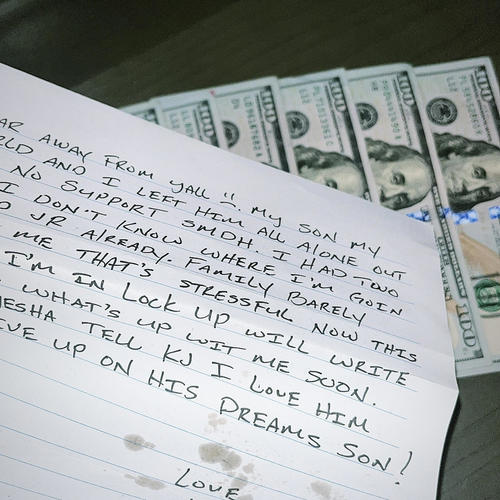 AR AWAY FROM YALL !!. MY SON MY
RLD AND I LEFT HIM ALL ALONE OUT
NO SUPPORT SMDH. I HAD TWO
I DON'T KNOW WHERE I'M GOIN
JR ALREADY. FAMILY BARELY
ME THAT'S STRESSFUL NOW THIS
I'M IN LOCK UP WILL WRITE
WHAT'S UP WIT ME SOON.
ESHA TELL KJ I LOVE HIM
IVE UP ON HIS DREAMS SON!
LOVE
100
100
100
100